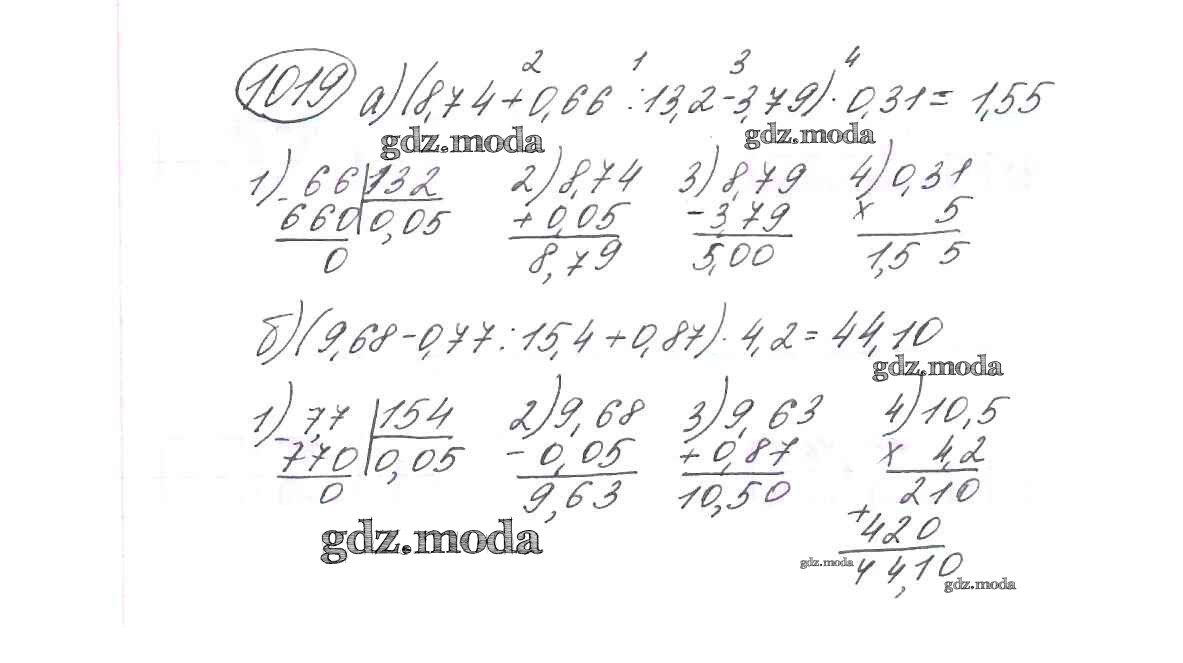 2 1 3 4
1019 а) (8,74 + 0,66 : 13,2 - 3,79) · 0,31 = 1,55
gdz.moda gdz.moda
1) 66 | 132 2) 8,74 3) 8,79 4) 0,31
- 660 | 0,05 + 0,05 - 3,79 x 5
0 8,79 5,00 1,5 5
б) (9,68 - 0,77 : 15,4 + 0,87) · 4,2 = 44,10
gdz.moda
1) 7,7 | 154 2) 9,68 3) 9,63 4) 10,5
- 770 | 0,05 - 0,05 + 0,87 x 4,2
0 9,63 10,50 210
gdz.moda + 420
gdz.moda 44,10
gdz.moda